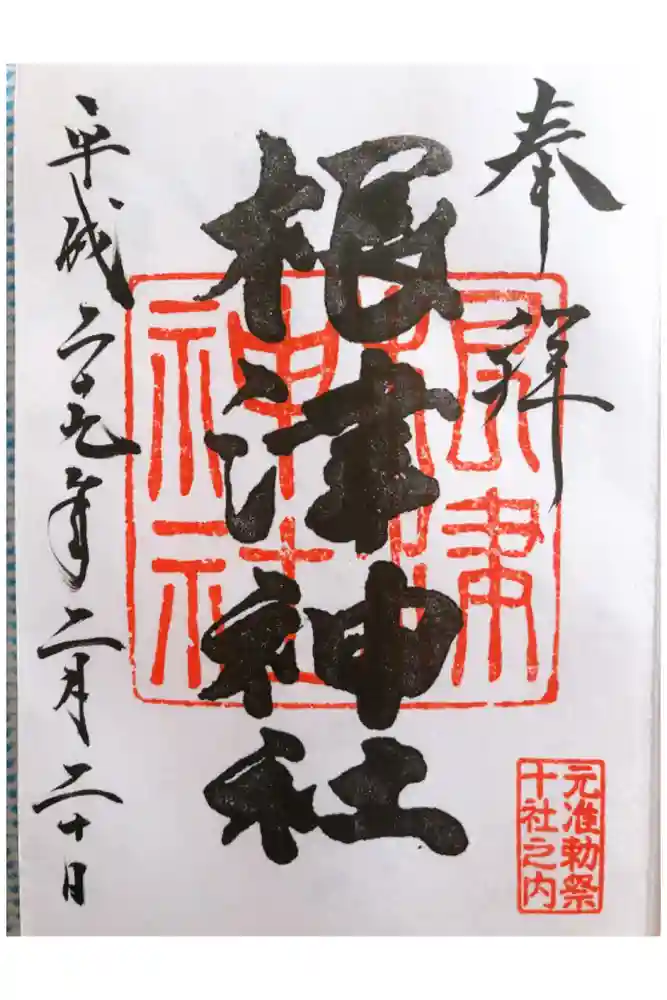 奉拝
根津神社
根津神社
元准勅祭
十社之内
平成二十九年二月二十日